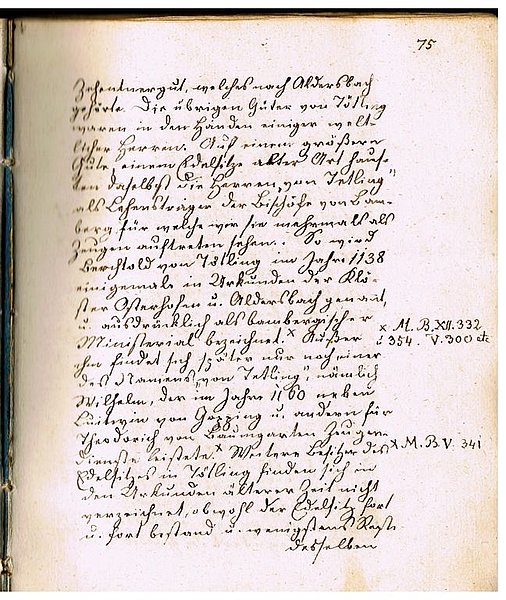 75
Zehentnergut, welches nach Aldersbach
gehörte. Die übrigen Güter von Tötling
waren in den Händen einiger welt-
licher Herren. Auf einem größern
Gute, einem Edelsitze alter Art haus-
ten daselbst die Herren „von Tetling"
als Lehensträger der Bischöfe von Bam-
berg, für welche wir sie mehrmals als
Zeugen auftreten sehen. So wird
Berchtold von Tötling im Jahre 1138
einigemale in Urkunden der Klö-
ster Osterhofen u. Aldersbach genannt,
u. ausdrücklich als bambergischer
Ministerial bezeichnet.x Außer
x M. B. XII. 332
ihm findet sich später nur noch einer
354. V. 300 etc
des Namens „von Tetling", nämlich
Wilhelm, der im Jahre 1160 neben
Luitwin von u. andern für
Theodorich von Baumgarten Zeugen-
dienste leistete.x Weitere Besitzer des
x M. B. V. 341
Edelsitzes in Tötling finden sich in
den Urkunden älterer Zeit nicht
verzeichnet, obwohl der Edelsitz fort
u. fort bestand u. wenigstens Reste
desselben